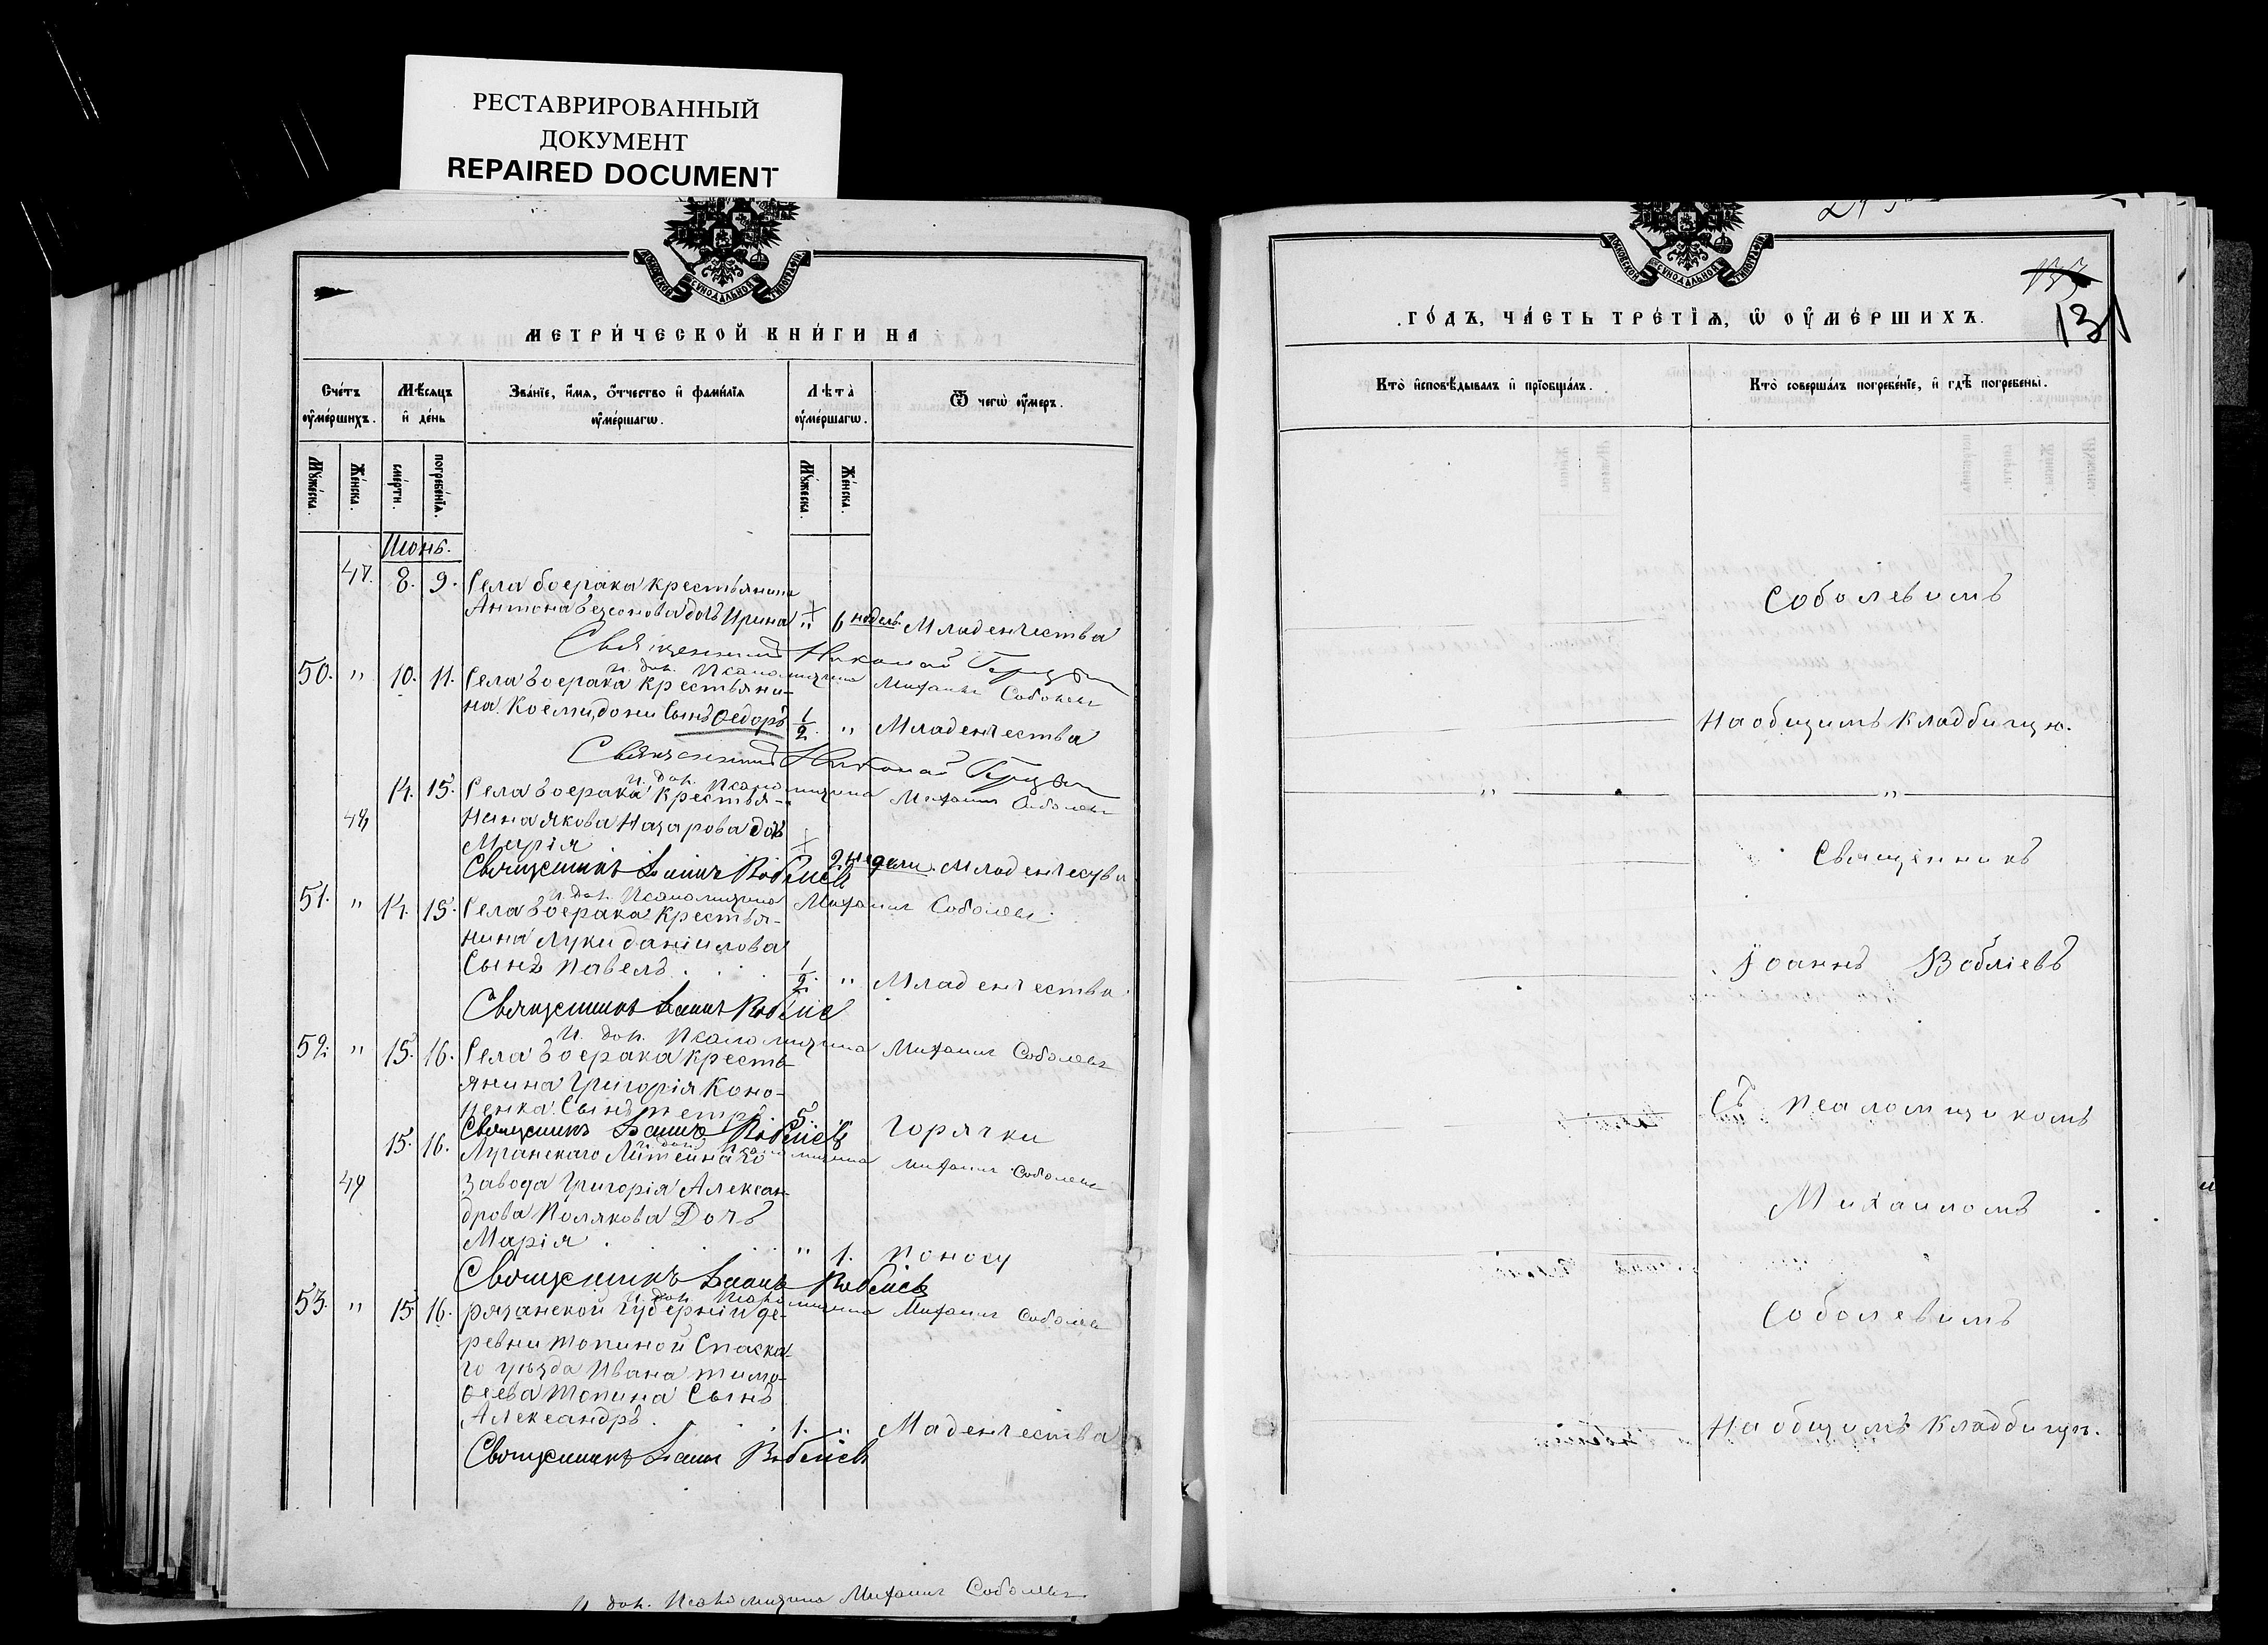 РЕСТАВРИРОВАННЫЙ
ДОКУМЕНТ
REPAIRED DOCUMENT
МОСКОВСКОЙ СѴНОДАЛЬНОЙ ТИПОГРАФІИ
МЕТРИ́ЧЕСКОЙ КНИ́ГИ НА
Сче́тъ ᲂу҆ме́ршихъ.
Мѣ́сяцъ и҆ де́нь
Зва́нїе, и҆́мѧ, ѻ҆́тчество и҆ фами́лїѧ ᲂу҆ме́ршагѡ.
Лѣ́та ᲂу҆ме́ршагѡ.
Ѿ чегѡ̀ ᲂу҆́меръ.
Мꙋ́жеска.
Же́нска.
сме́рти.
погребе́нїѧ.
Мꙋ́жеска.
Же́нска.
Июнь.
47. 8. 9. Села боерака крестьянина
Антона дочь Ирина " 6 недель Младенчества
Священник Николай
И. дол. Псаломщика Михаил Соболев
50. " 10. 11. Села боерака крестьяни-
на Сынъ Ѳедоръ 1/2 " Младенчества
Священник Николай
И. дол. Псаломщика Михаил Соболев
48 14. 15. Села боерака крестья-
нина Якова Назарова дочь
Марія 2 недели Младенчества
Священникъ Іоаннъ Воблiевъ
И. дол. Псаломщика Михаил Соболев
51. " 14. 15. Села боерака крестья-
нина Луки даніилова
Сынъ Павелъ. 1/2. " Младенчества
Священникъ Іоаннъ Воблiевъ
И. дол. Псаломщика Михаил Соболевъ
52. " 15. 16. Села боерака кресть-
янина Григорія Коно-
ненка Сынъ петръ. 5. " Горячки
Священникъ Іоаннъ Воблiевъ
И. дол. Псаломщика Михаил Соболев
49 15. 16. Луганскаго Литейнаго
Завода Григорія Алексан-
дрова Полякова Дочь
Марія " 1. Поносу
Священникъ Іоаннъ Воблiевъ
И. дол. Псаломщика Михаил Соболев
53. " 15 16. рязанской Губерніи де-
ревни Топиной Спаска-
го уѣзда Ивана тимо-
ѳеева Топина Сынъ
Александръ. 1. " Маденчества
Священникъ Іоаннъ Воблiевъ
И. дол. Псаломщика Михаил Соболевъ
МОСКОВСКОЙ СѴНОДАЛЬНОЙ ТИПОГРАФІИ
131
ГО́ДЪ, ЧА́СТЬ ТРЕ́ТЇѦ, Ѡ҆ ОУ҆МЕ́РШИХЪ.
Кто̀ и҆сповѣ́дывалъ и҆ прїѻбща́лъ.
Кто̀ соверша́лъ погребе́нїе, и҆ гдѣ̀ погребены̀.
Соболевимъ
На общимъ кладбищю.
" "
Священникъ
Іоаннъ Воблiевъ
Съ псаломщикомъ
Михаиломъ
Соболевимъ
На общимъ кладбищѣ.